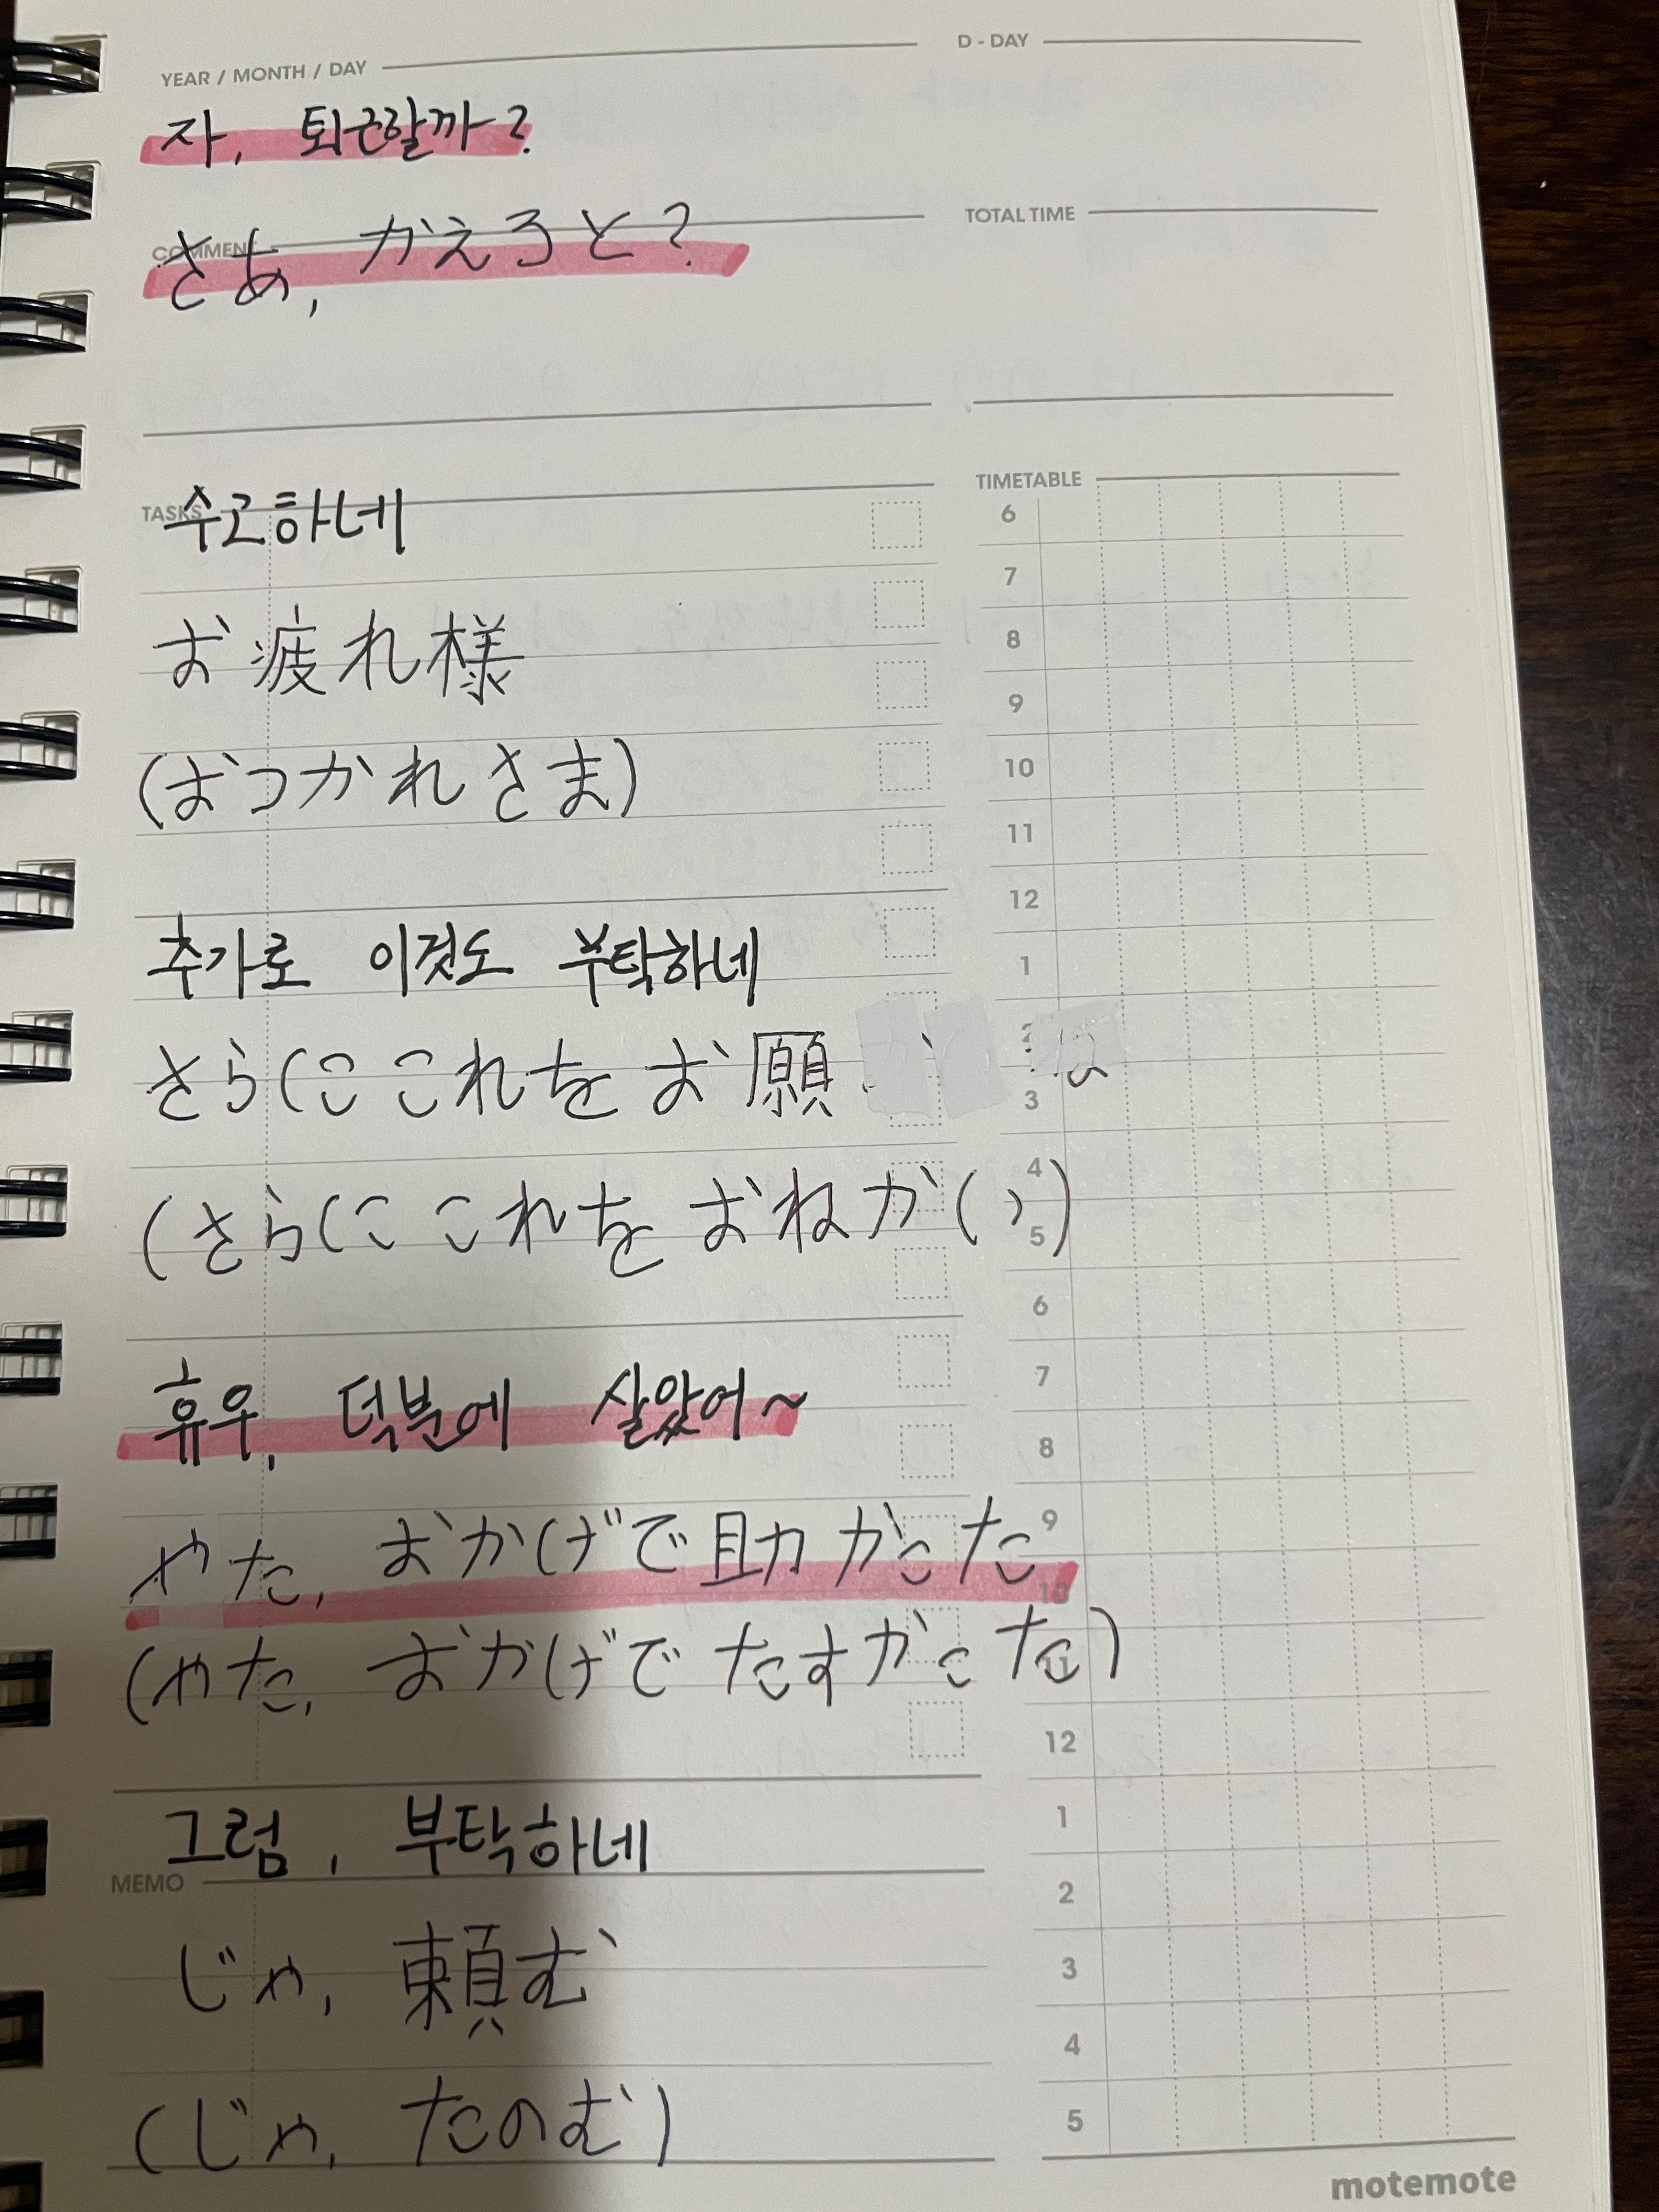 YEAR / MONTH / DAY
D - DAY
자, 퇴근할까?
COMMENT
TOTAL TIME
さあ, かえろと?
TASKS
TIMETABLE
수고하네
お疲れ様
(おつかれさま)
추가로 이것도 부탁하네
さらにこれをお願
(さらにこれをおねがい)
휴우, 덕분에 살았어~
やた, おかげで助かこた
(やた, おかげでたすかこた)
그럼, 부탁하네
MEMO
じゃ, 頼む
(じゃ, たのむ)
6
7
8
9
10
11
12
1
2
3
4
5
6
7
8
9
10
11
12
1
2
3
4
5
motemote